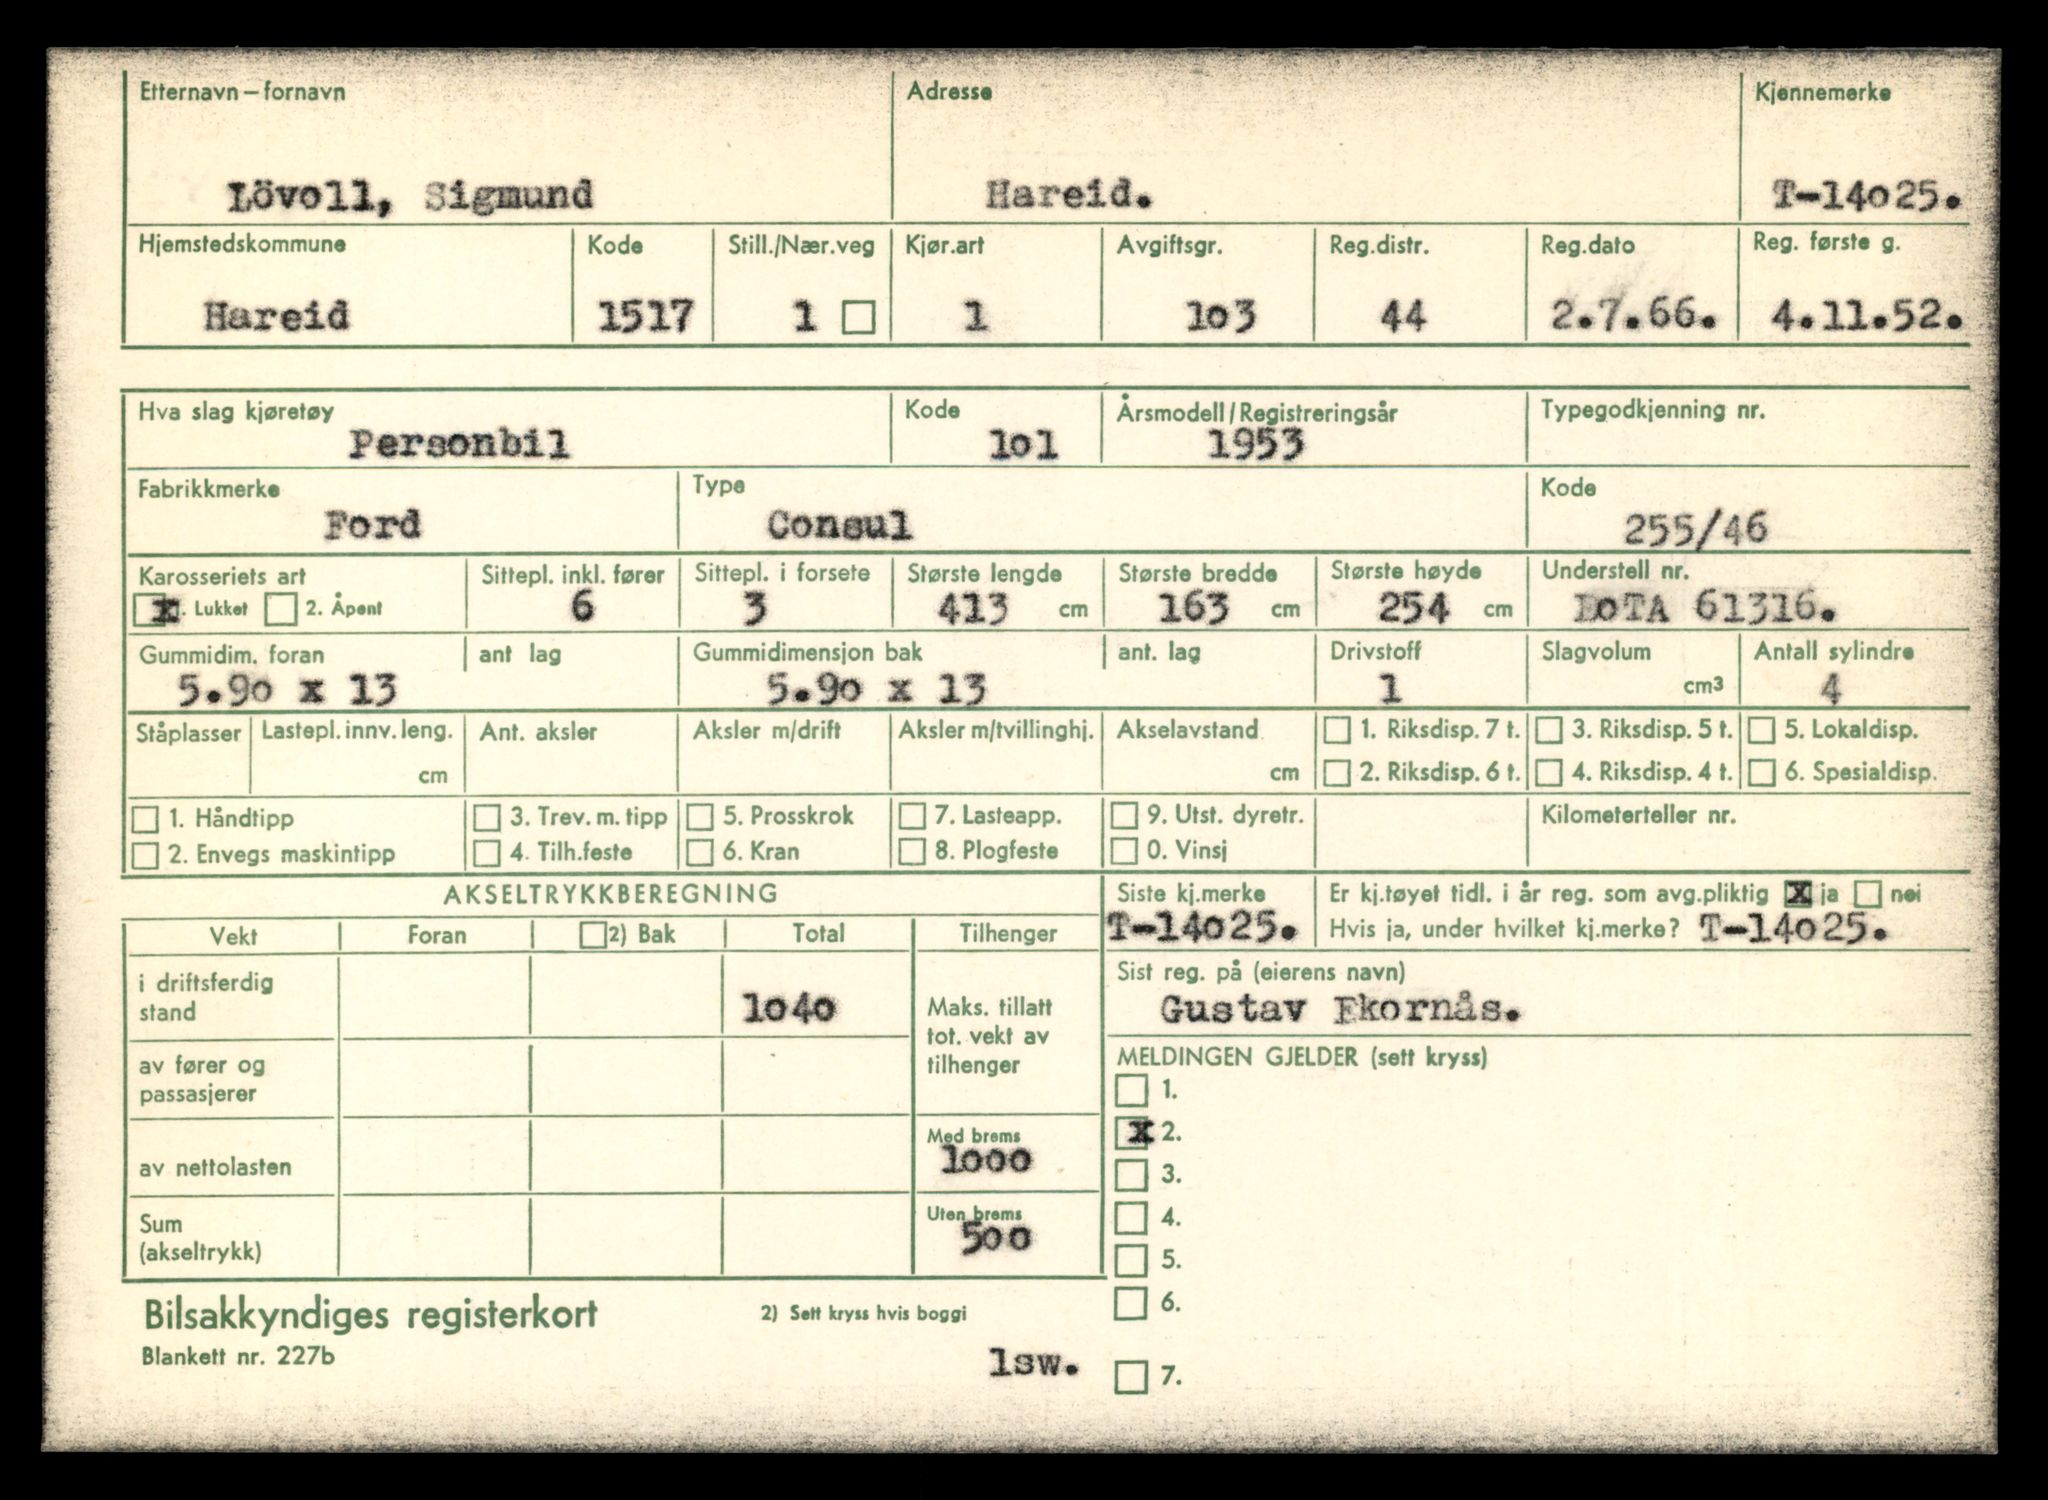 Etternavn – fornavn Adresse Kjennemerke
Lövoll, Sigmund Hareid. T-14o25.
Hjemstedskommune Kode Still./Nær.veg Kjør.art Avgiftsgr. Reg.distr. Reg.dato Reg. første g.
Hareid 1517 1 1 1o3 44 2.7.66. 4.11.52.
Hva slag kjøretøy Kode Årsmodell/Registreringsår Typegodkjenning nr.
Personbil 1o1 1953
Fabrikkmerke Type Kode
Ford Consul 255/46
Karosseriets art Sittepl. inkl. fører Sittepl. i forsete Største lengde Største bredde Største høyde Understell nr.
x. Lukket 2. Åpent 6 3 413 cm 163 cm 254 cm EoTA 61316.
Gummidim. foran ant lag Gummidimensjon bak ant. lag Drivstoff Slagvolum Antall sylindre
5.9o x 13 5.9o x 13 1 cm³ 4
Ståplasser Lastepl. innv. leng. Ant. aksler Aksler m/drift Aksler m/tvillinghj. Akselavstand 1. Riksdisp. 7 t. 3. Riksdisp. 5 t. 5. Lokaldisp.
cm cm 2. Riksdisp. 6 t. 4. Riksdisp. 4 t. 6. Spesialdisp.
1. Håndtipp 3. Trev. m. tipp 5. Prosskrok 7. Lasteapp. 9. Utst. dyretr. Kilometerteller nr.
2. Envegs maskintipp 4. Tilh.feste 6. Kran 8. Plogfeste 0. Vinsj
AKSELTRYKKBEREGNING Siste kj.merke Er kj.tøyet tidl. i år reg. som avg.pliktig x ja nei
T-14o25. Hvis ja, under hvilket kj.merke? T-14o25.
Vekt Foran 2) Bak Total Tilhenger
Sist reg. på (eierens navn)
Gustav Ekornås.
i driftsferdig
stand 1o4o
Maks. tillatt
tot. vekt av
tilhenger
av fører og
passasjerer
av nettolasten
Med brems
1ooo
Sum
(akseltrykk)
Uten brems
5oo
MELDINGEN GJELDER (sett kryss)
1.
x 2.
3.
4.
5.
6.
7.
Bilsakkyndiges registerkort 2) Sett kryss hvis boggi
Blankett nr. 227b 1sw.